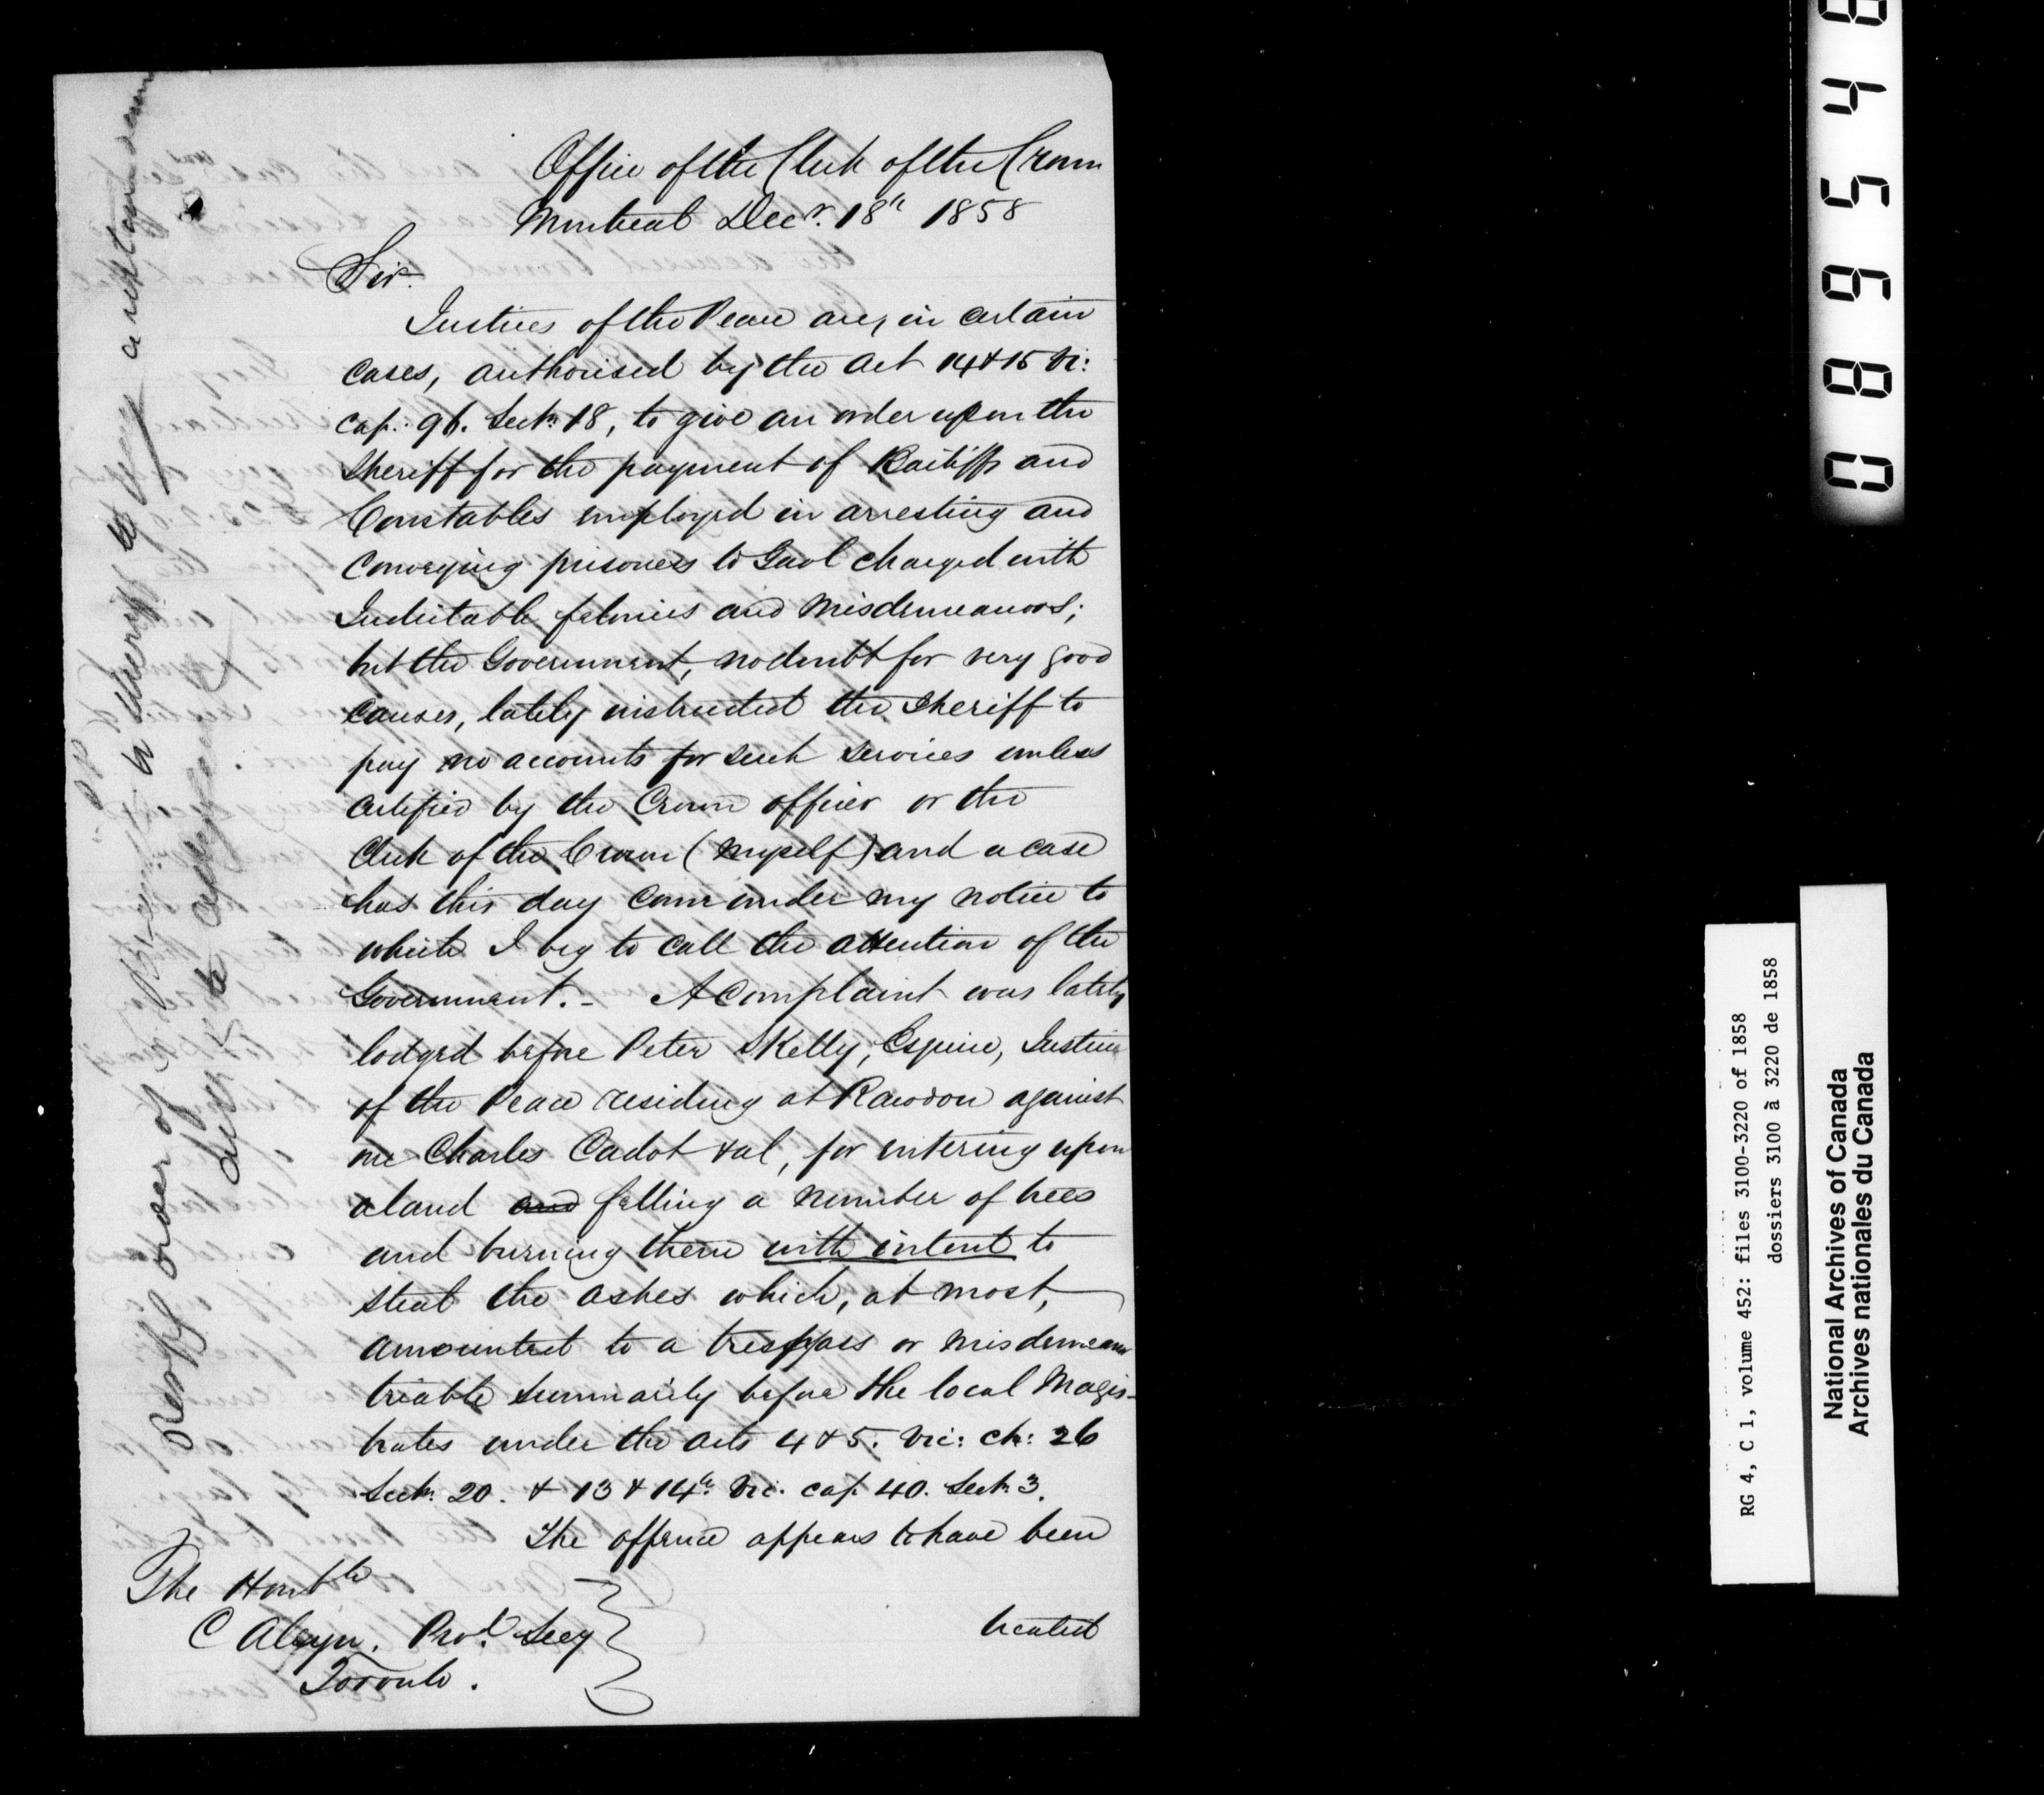 Office of the Clerk of the Crown
Montreal Decr. 18th 1858
Sir.
Justices of the Peace are, in certain
cases, authorised by the Act 14 & 15 Vi:
cap: 96. Sectn 18, to give an order upon the
Sheriff for the payment of Bailiffs and
Constables employed in arresting and
conveying prisoners to Gaol charged with
Indictable felonies and misdemeanors;
but the Government, no doubt for very good
causes, lately instructed the Sheriff to
pay no accounts for such services unless
certified by the Crown officer or the
Clerk of the Crown (myself) and a case
has this day come under my notice to
which I beg to call the attention of the
Government. - A Complaint was lately
lodged before Peter Skelly, Esquire, Justice
of the Peace residing at Rawdon against
one Charles Cadot & al, for entering upon
a land and felling a number of trees
and burning them with intent to
steal the ashes which, at most,
amounted to a trespass or misdemeanor
triable summarily before the local Magis-
trates under the acts 4 & 5. Vic: ch: 26
Sectn. 20. & 13 & 14th. Vic. cap 40. Sectn 3.
The offence appears to have been
treated
The Honble
C Alleyn. Provl. Secy
Toronto.
order of
to Sheriff to
08954
RG 4, C 1, volume 452: files 3100-3220 of 1858
dossiers 3100 à 3220 de 1858
National Archives of Canada
Archives nationales du Canada